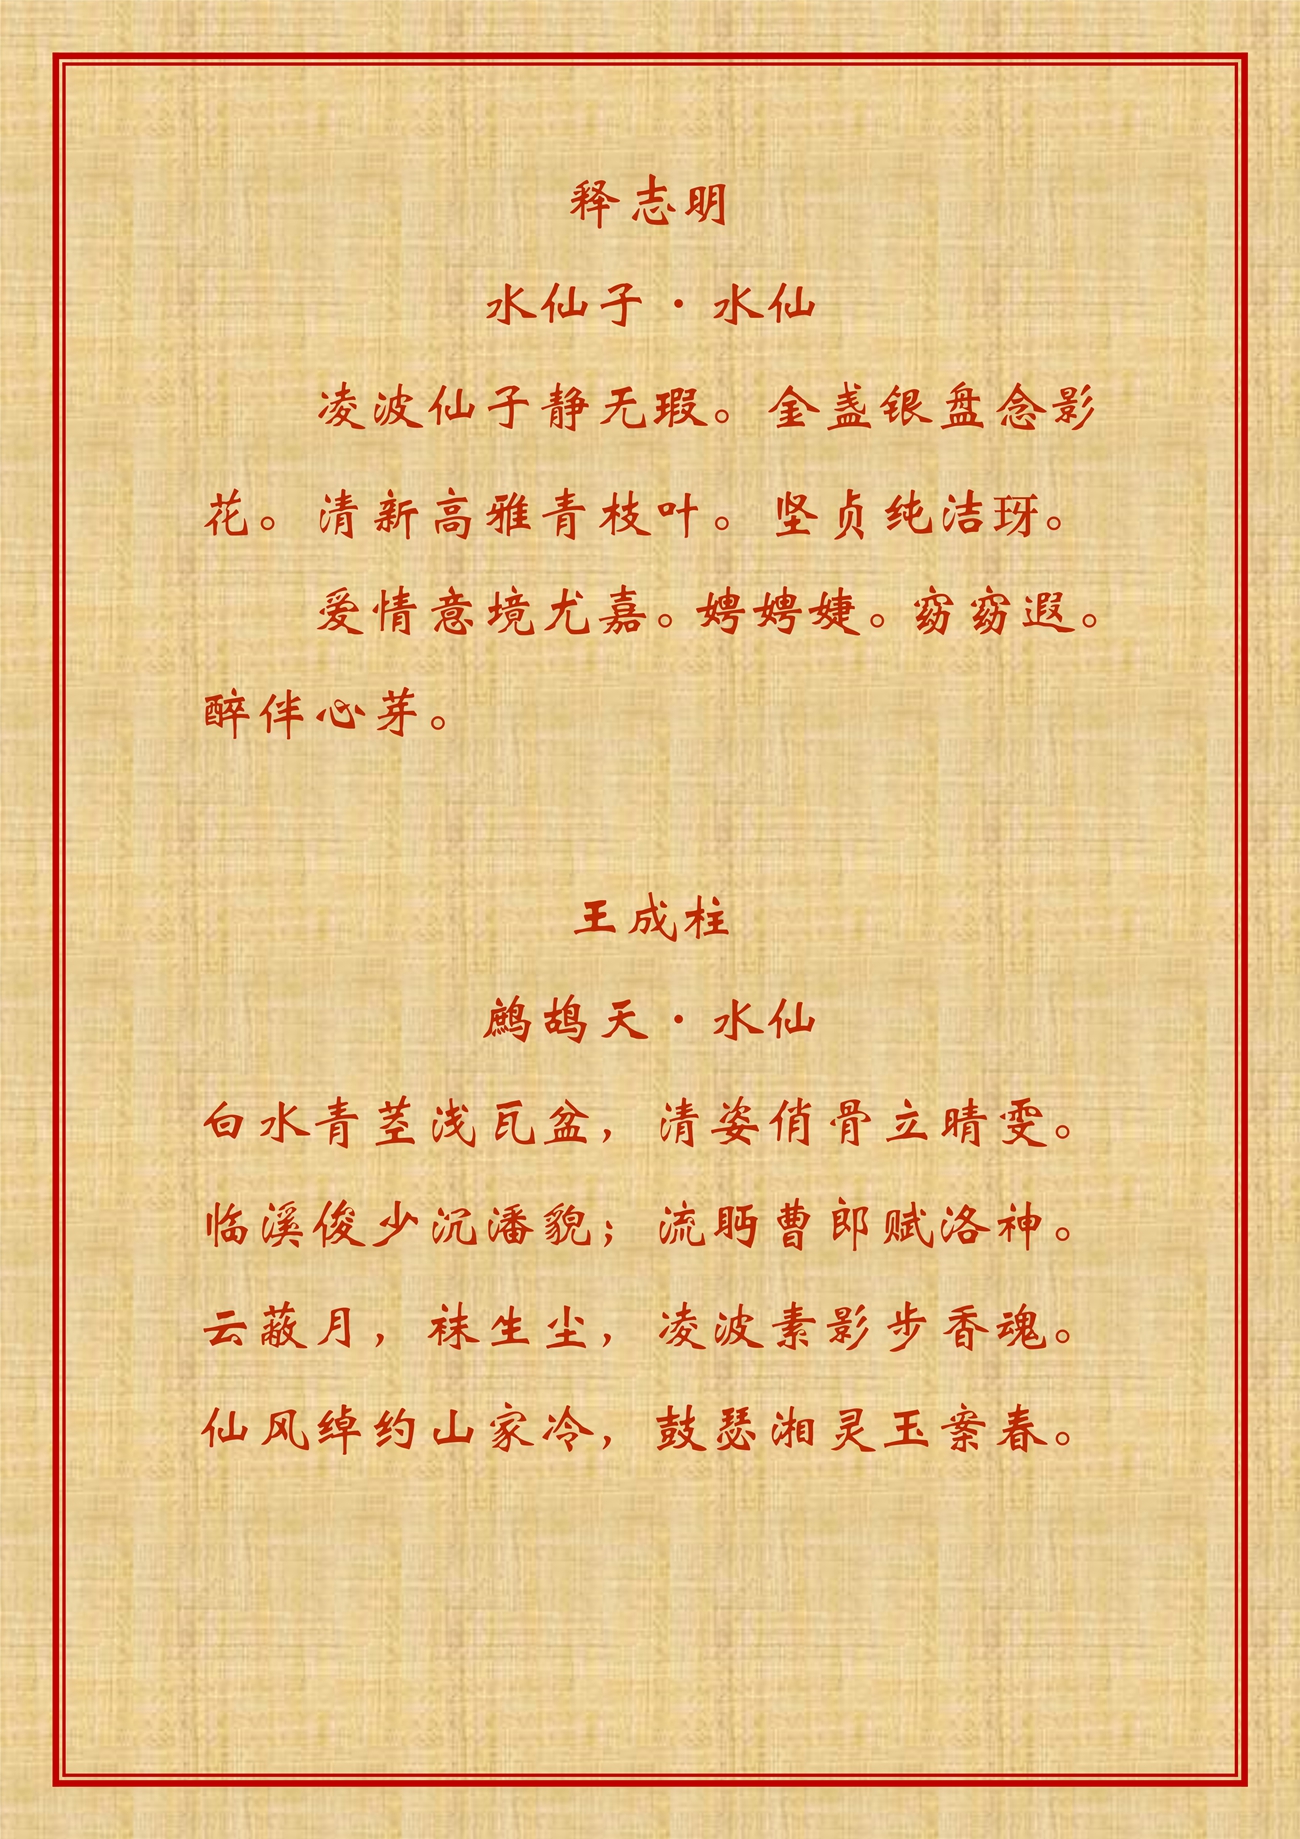 释志明
水仙子·水仙
凌波仙子静无瑕。金盏银盘念影
花。清新高雅青枝叶。坚贞纯洁玡。
爱情意境尤嘉。娉娉婕。窈窈遐。
醉伴心芽。
王成柱
鹧鸪天·水仙
白水青茎浅瓦盆，清姿俏骨立晴雯。
临溪俊少沉潘貌；流眄曹郎赋洛神。
云蔽月，袜生尘，凌波素影步香魂。
仙风绰约山家冷，鼓瑟湘灵玉案春。